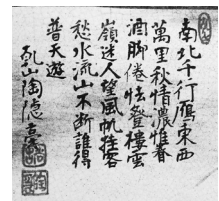 南北千行雁東西
萬里秋情濃惟看
酒脚倦怯登樓雲
嶺迷人望風帆往客
愁水流山不斷誰得
普天遊
山陶隐